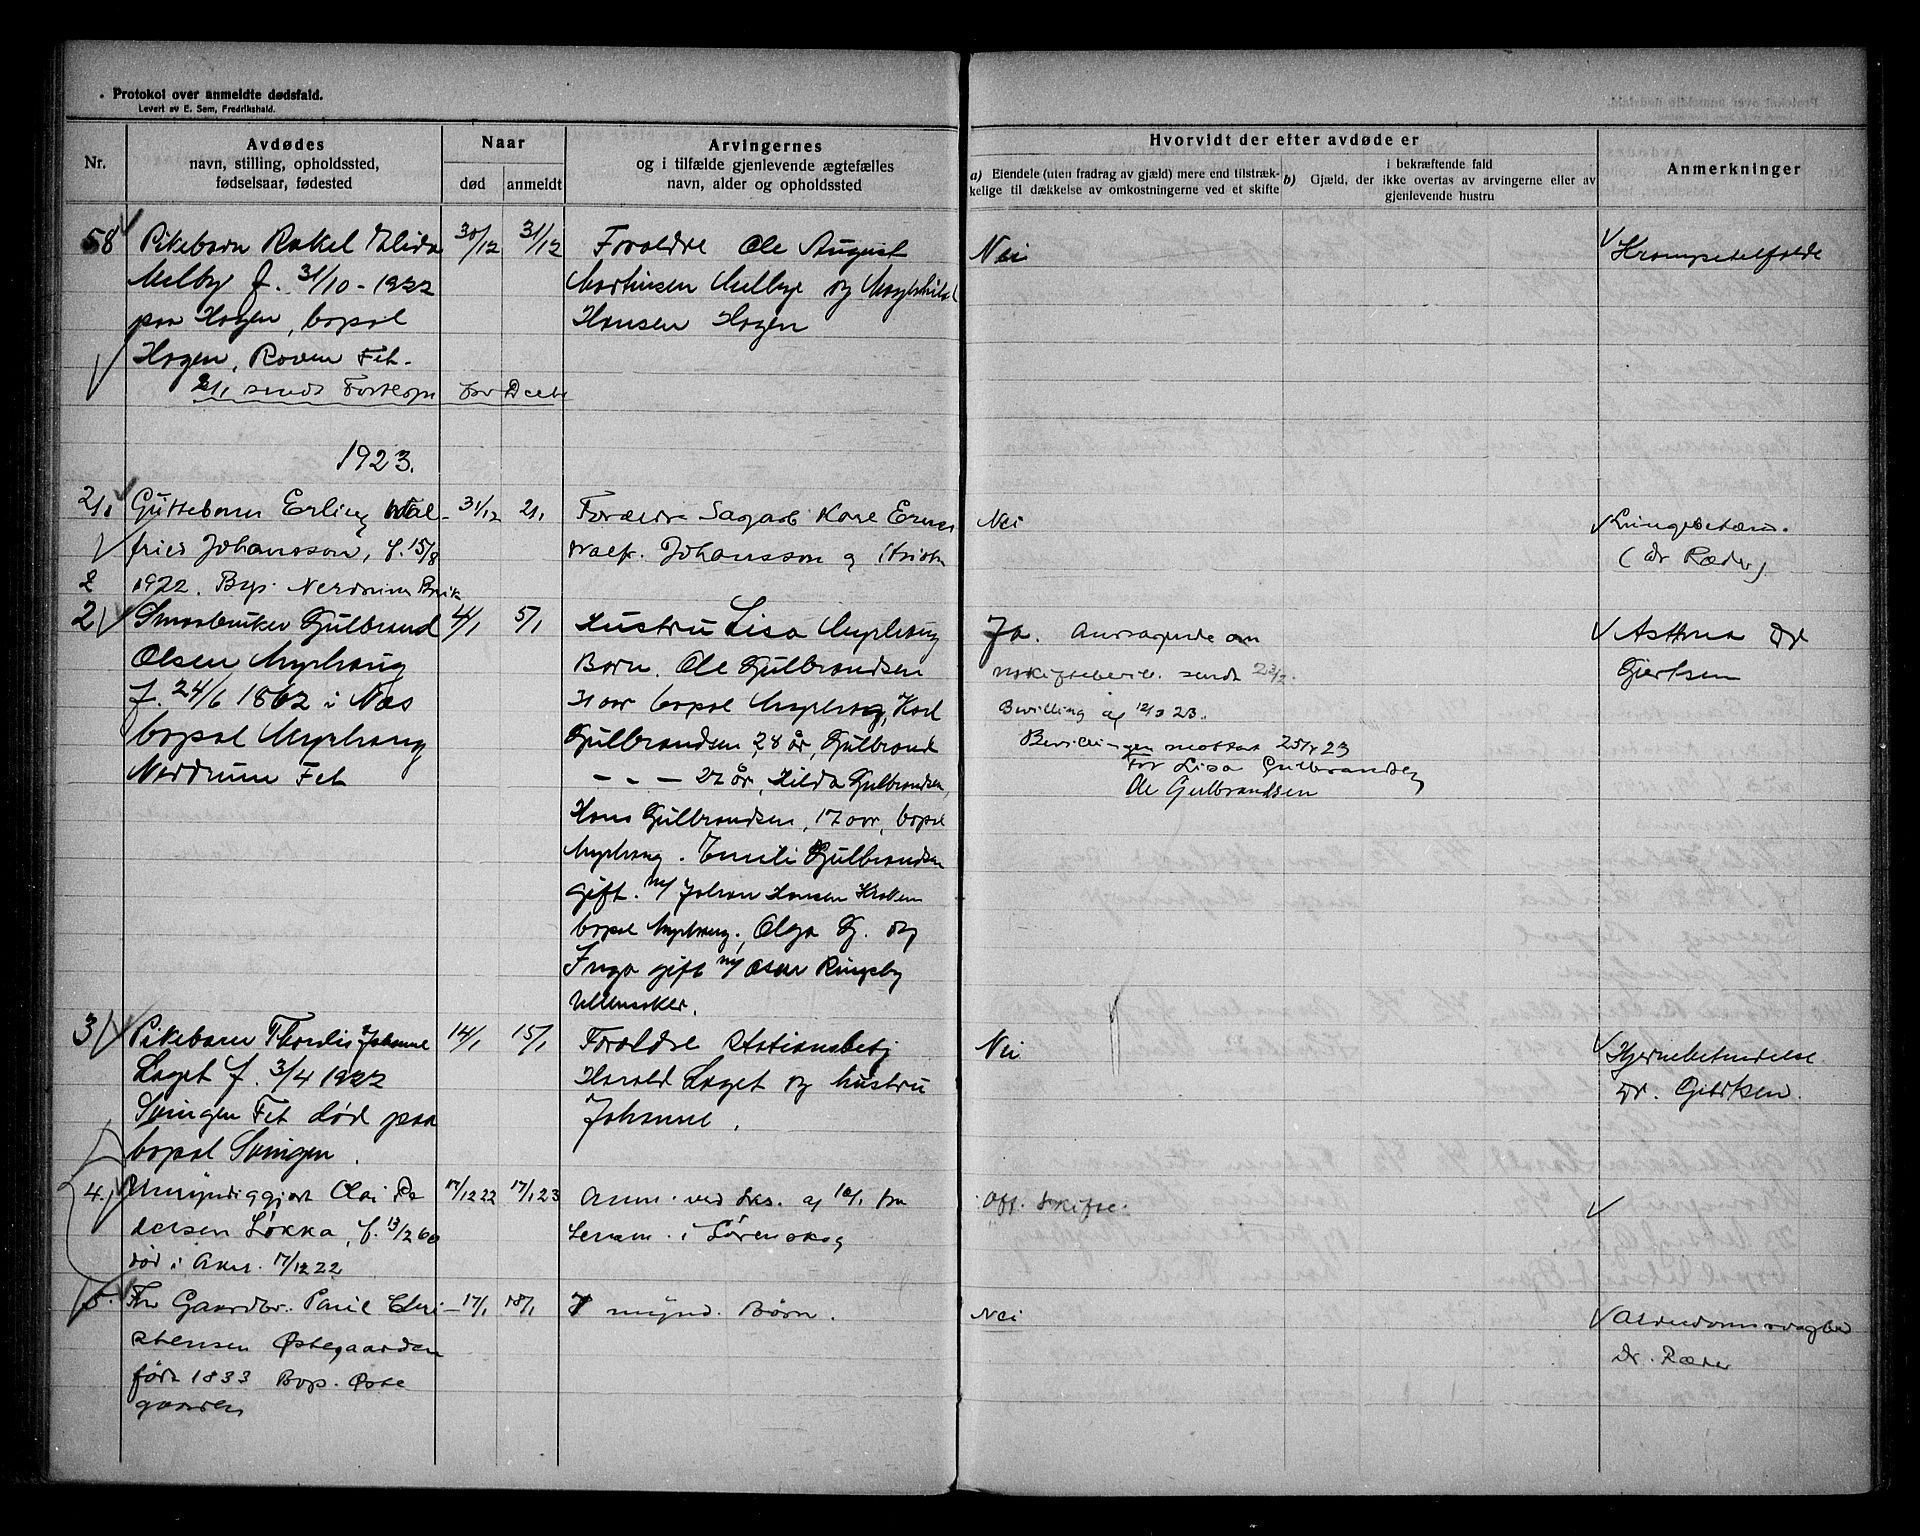 Protokol over anmeldte dødsfald.
Levert av E. Sem, Fredrikshald.
Nr.
Avdødes
navn, stilling, opholdssted,
fødselsaar, fødested
Naar
død
anmeldt
Arvingernes
og i tilfælde gjenlevende ægtefælles
navn, alder og opholdssted
Hvorvidt der efter avdøde er
a) Eiendele (uten fradrag av gjæld) mere end tilstræk-
kelige til dækkelse av omkostningerne ved et skifte
i bekræftende fald
b) Gjæld, der ikke overtas av arvingerne eller av
gjenlevende hustru
Anmerkninger
58
Pikebarn Rakel Elida
Melby f. 31/10 - 1922
paa Hagen, bopæl
Hagen, Roven Fet.
30/12
31/12
Forældre Ole August
Martinsen Melbye og Magnhild
Hansen Hagen
Nei
Krampetilfælde
2/1 sendt
1923.
Guttebarn Erling Wal-
fried Johansson, f. 15/8
1922. Bop. Nerdrum Bruk
31/12
2/1
Forældre Sagarb. Karl
Valfr. Johansson og
Nei
Lungebetæn.
(Dr Ræder).
2
Smaabruker Gulbrand
Olsen Myrhaug
f. 24/6 1862 i Næs
bopæl Myrhaug
Nerdrum Fet
4/1
5/1
Hustru Lisa Myrhaug
Barn. Ole Gulbrandsen
31 aar bopæl Myrhaug, Karl
Gulbrandsen, 28 år, Gulbrand
— - — 22 år, Hilda Gulbrandsen,
Hans Gulbrandsen, 17 aar, bopæl
Myrhaug. Emili Gulbrandsen
gift. m/ Johan Hansen Kroken
bopæl Myrhaug., Olga G. og
Inga gift m/ Oskar Ringsby
Ullensaker.
Ja. Ansøgende om
sendt
Bevilling af 12/3 23.
Bevillingen mottat 23
for Lisa Gulbrandsen
Ole Gulbrandsen
Asthma Dr
Gjertsen
3
Pikebarn Thordis Johanne
Laget f. 3/4 1922
Svingen Fet død paa
bopæl Svingen.
14/1
15/1
Forældre Stationsbetj
Harald Laget og hustru
Johanne.
Nei
Hjernebetændelse
Dr. Gjertsen.
4.
Umyndiggjort Olai Pe
dersen Løkka, f. 13/2 60
død i Aker. 17/12 22
17/12 22
17/1 23
Anm. ved sks. af 16/1 fra
Lensm. i Lørenskog
Off. skifte.
5.
Fhv Gaardbr. Paul Chri-
stensen Østegaarden
født 1833 Bop. Øste
gaarden
17/1
18/1
7 mynd. Børn.
Nei
Alderdomssvaghed
Dr. Ræder